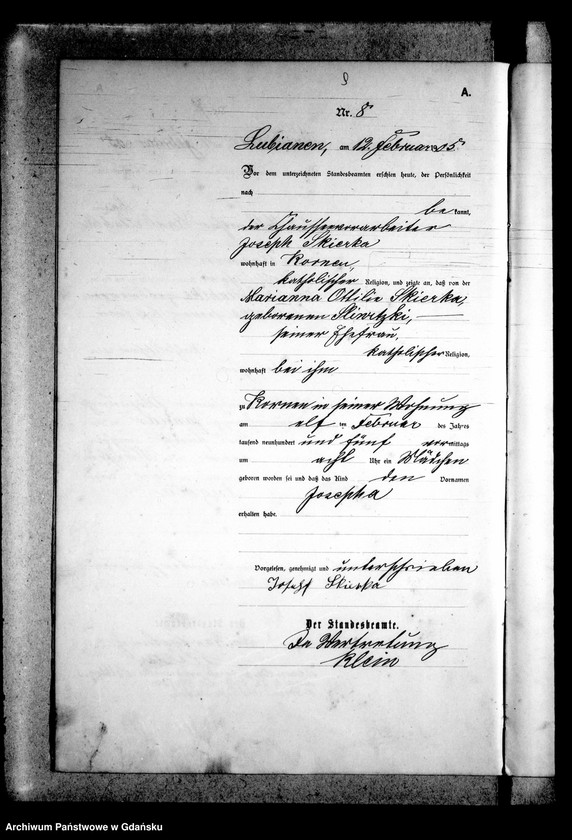 A.
Nr. 8
Lubianen, am 12. Februar 05
Vor dem unterzeichneten Standesbeamten erschien heute, der Persönlichkeit
nach
bekannt,
der Chausseevorarbeiter
Joseph Skierka
wohnhaft in Kornen,
katholischer Religion, und zeigte an, daß von der
Marianna Ottilie Skierka
geborenen
seiner Ehefrau,
katholischer Religion,
wohnhaft bei ihm
zu Kornen in seiner Wohnung
am elf ten Februar des Jahres
tausend neunhundert und fünf vormittags
um acht Uhr ein Mädchen
geboren worden sei und daß das Kind den Vornamen
Josepha
erhalten habe.
Vorgelesen, genehmigt und unterschrieben
Josef Skierka
Der Standesbeamte.
In Vertretung
Klein
Archiwum Państwowe w Gdańsku